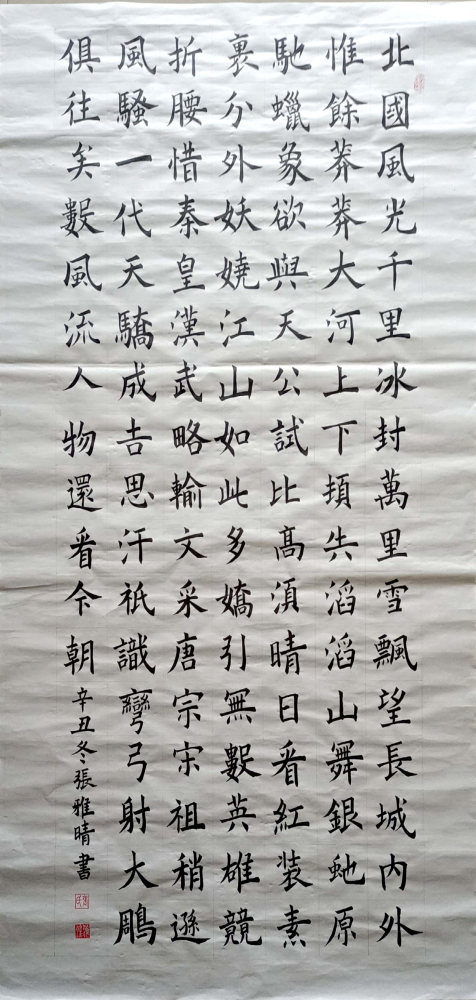 北國風光千里冰封萬里雪飄望長城內外
惟餘莽莽大河上下頓失滔滔山舞銀虵原
馳蠟象欲與天公試比高須晴日看紅裝素
裹分外妖嬈江山如此多嬌引無數英雄競
折腰惜秦皇漢武略輸文采唐宗宋祖稍遜
風騷一代天驕成吉思汗祇識彎弓射大鵰
俱往矣數風流人物還看今朝
辛丑冬張雅晴書